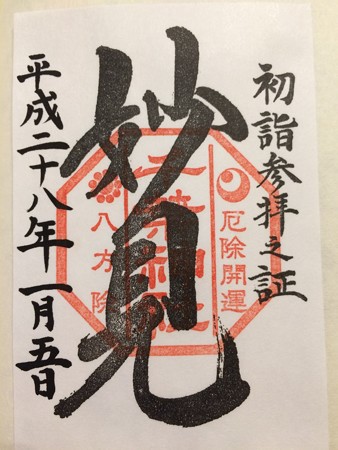 初詣参拝之証
妙見
厄除開運
千葉神社
八方除
平成二十八年一月五日